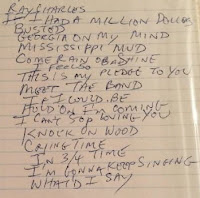 RAY CHARLES
IF I HAD A MILLION DOLLAR
BUSTED
GEORGIA ON MY MIND
MISSISSIPPI MUD
COME RAIN OR SHINE
I
THIS IS MY PLEDGE TO YOU
MEET THE BAND
IF I COULD BE
HOLD ON I'M COMING
I CANT STOP LOVING YOU
KNOCK ON WOOD
CRYING TIME
IN 3/4 TIME
I'M GONNA KEEP SINGING
WHAT'D I SAY